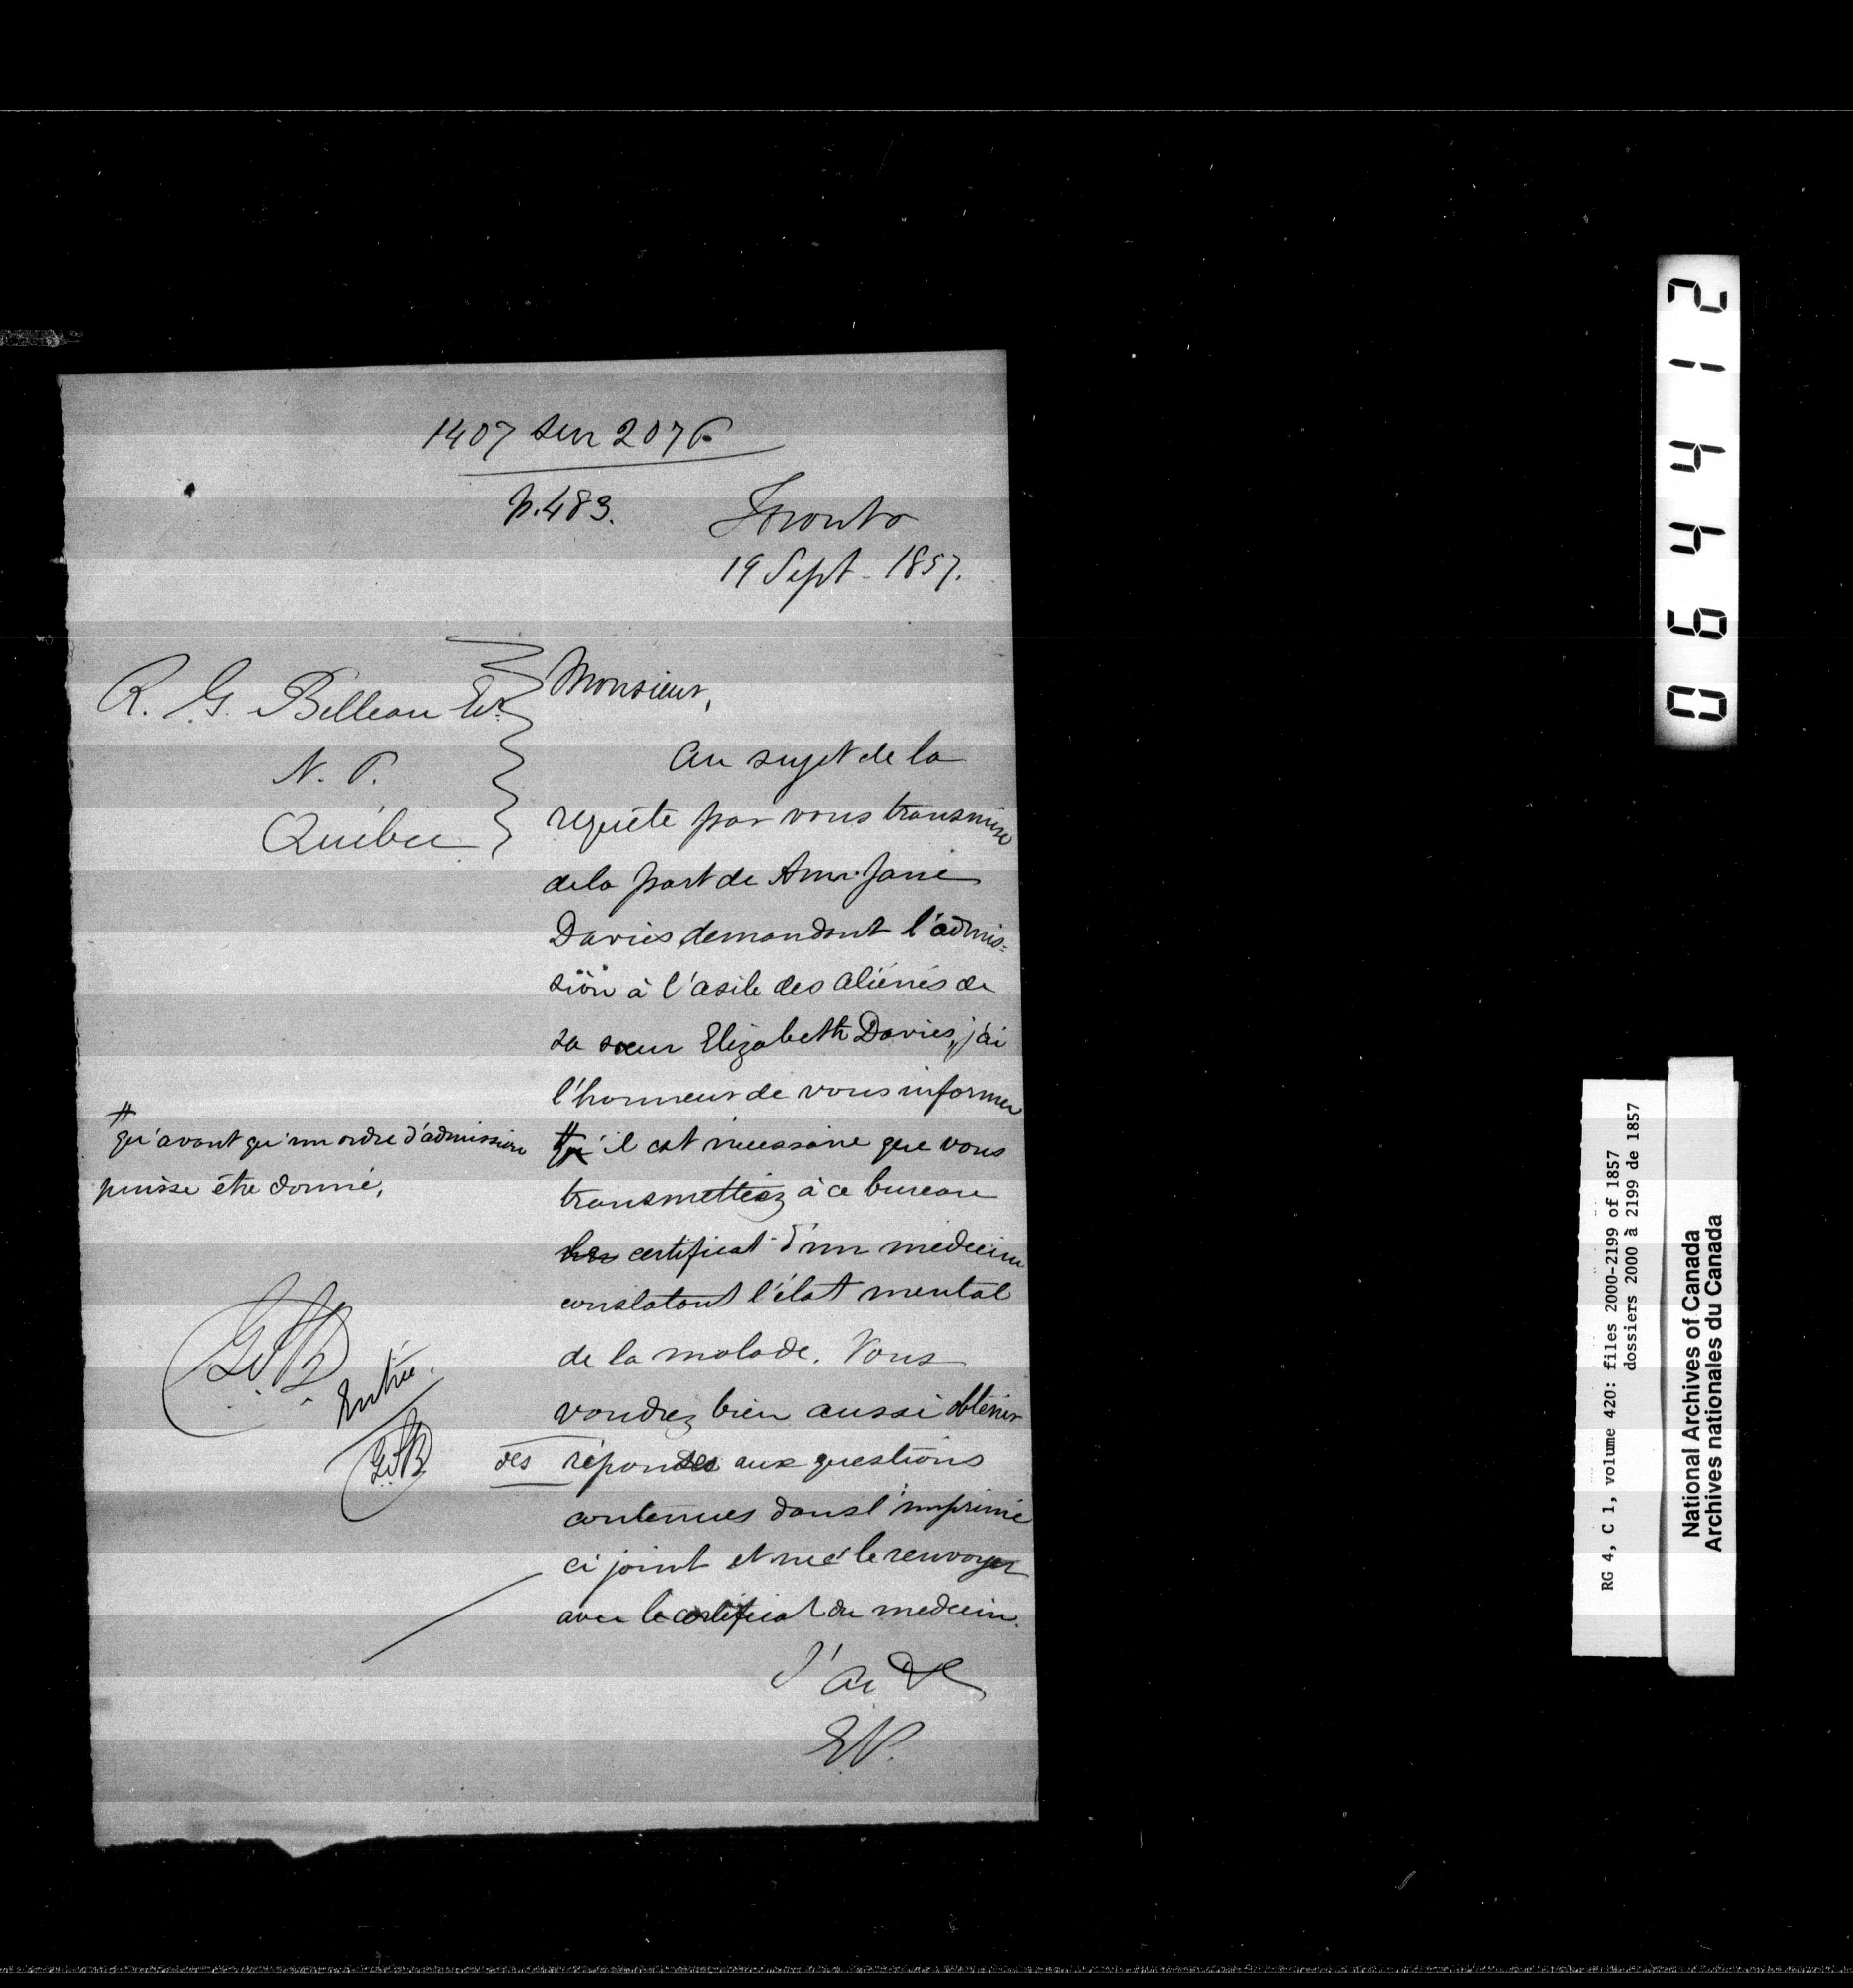 1407 sur 2076
p. 483.
Toronto
19 Sept - 1857.
R. G. Belleau Esr.
N. P.
Québec
Monsieur,
Au sujet de la
requête par vous transmise
de la part de Ann Jane
Davies demandant l'admis=
sion à l'asile des aliénés de
sa sœur Elizabeth Davies, j'ai
l'honneur de vous informer
#
qu'avant qu'un ordre d'admission
puisse être donné,
# qu'il est nécessaire que vous
transmettiez à ce bureau
certificat d'un medecin
constatant l'état mental
de la malade. Vous
voudrez bien aussi obtenir
des réponses aux questions
contenues dans l'imprimé
ci joint et me le renvoyer
avec le certificat du medecin.
J'ai &c
E.P.
Entrée.
0 6 4 4 1 2
RG 4, C 1, volume 420: files 2000-2199 of 1857
dossiers 2000 à 2199 de 1857
National Archives of Canada
Archives nationales du Canada